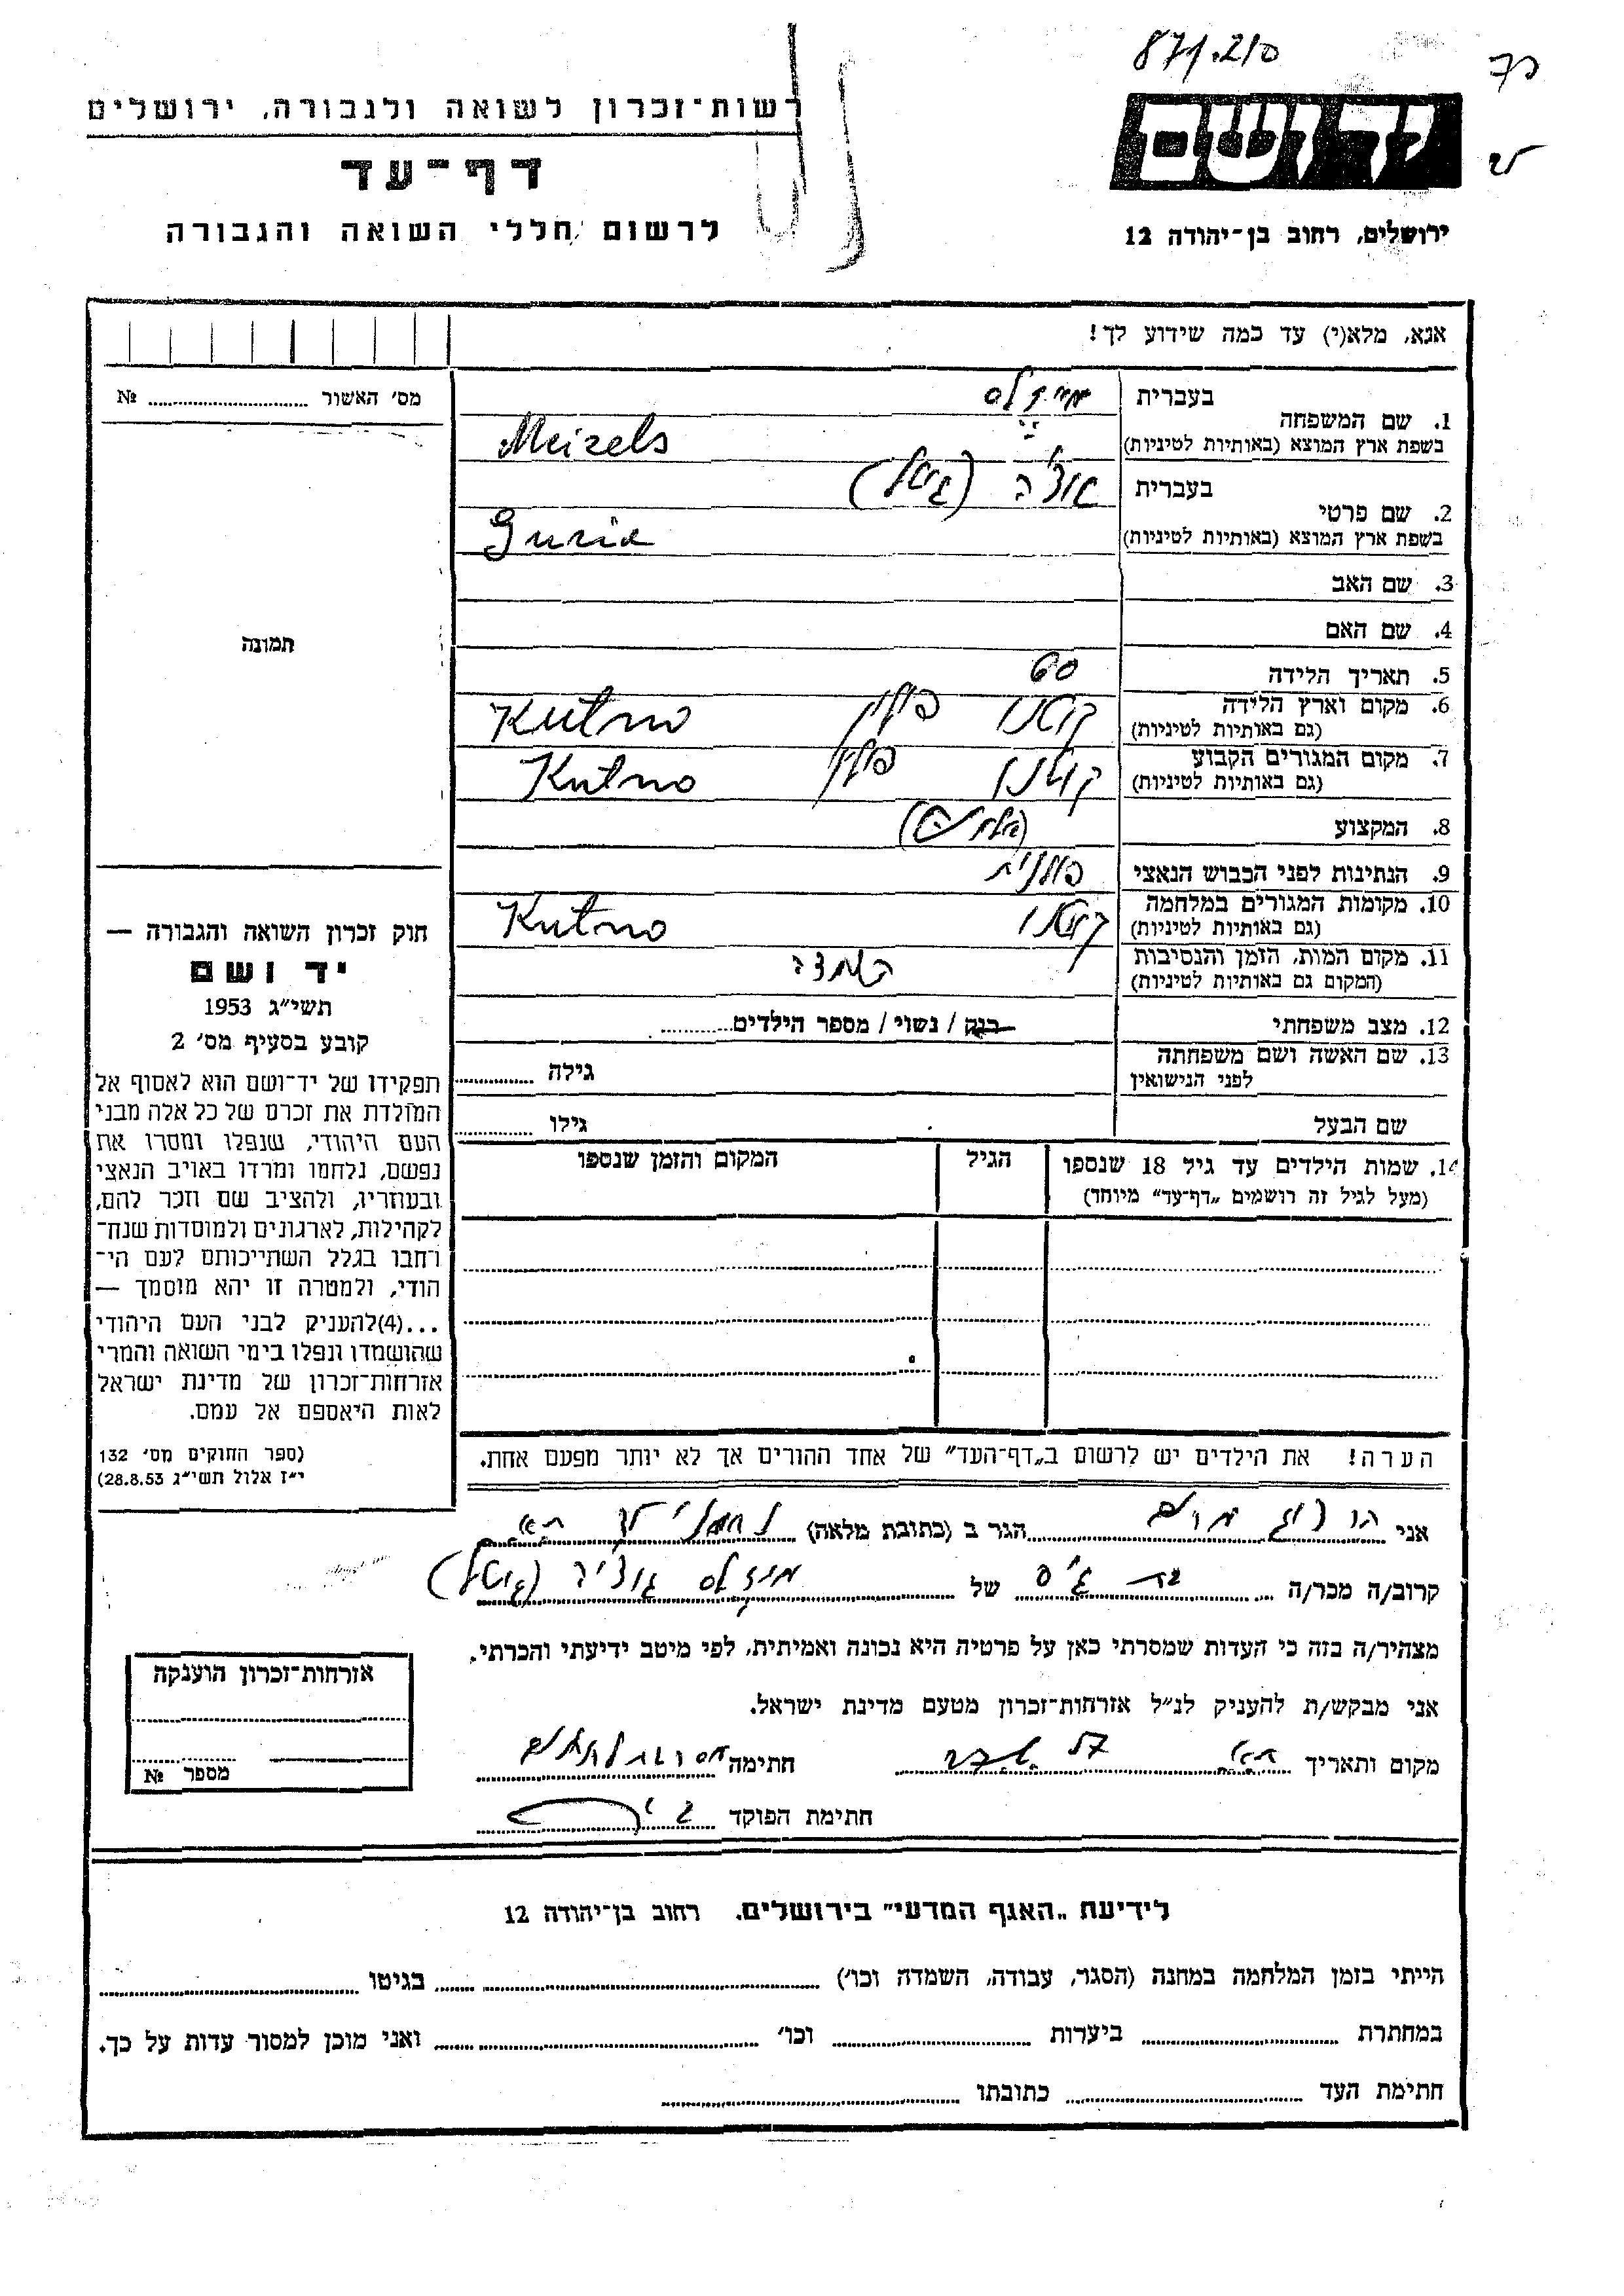 871.210
רשות־זכרון לשואה ולגבורה, ירושלים
דף־עד
לרשום חללי השואה והגבורה
ירושלים, רחוב בן־יהודה 12
אנא, מלא(י) עד כמה שידוע לך!
מס׳ האשור № 
1. שם המשפחה
בעברית מיזלס
בשפת ארץ המוצא (באותיות לטיניות) Meizels
2. שם פרטי
בעברית גוצ'ה (גיטל)
בשפת ארץ המוצא (באותיות לטיניות)
3. שם האב
4. שם האם
5. תאריך הלידה 60
6. מקום וארץ הלידה (גם באותיות לטיניות) קוטנו פולין Kutno
7. מקום המגורים הקבוע (גם באותיות לטיניות) קוטנו פולין Kutno
8. המקצוע
9. הנתינות לפני הכבוש הנאצי פולנית
10. מקומות המגורים במלחמה (גם באותיות לטיניות) קוטנו Kutno
11. מקום המות, הזמן והנסיבות (המקום גם באותיות לטיניות)
12. מצב משפחתי רוק / נשוי / מספר הילדים
13. שם האשה ושם משפחתה לפני הנישואין גילה
שם הבעל גילו
14. שמות הילדים עד גיל 18 שנספו הגיל המקום והזמן שנספו
(מעל לגיל זה רושמים „דף־עד״ מיוחד)
תמונה
חוק זכרון השואה והגבורה —
יד ושם
תשי״ג 1953
קובע בסעיף מס׳ 2
תפקידו של יד־ושם הוא לאסוף אל
המולדת את זכרם של כל אלה מבני
העם היהודי, שנפלו ומסרו את
נפשם, נלחמו ומרדו באויב הנאצי
ובעוזריו, ולהציב שם וזכר להם,
לקהילות, לארגונים ולמוסדות שנח־
רחבו בגלל השתייכותם לעם הי־
הודי, ולמטרה זו יהא מוסמך —
...(4)להעניק לבני העם היהודי
שהושמדו ונפלו בימי השואה והמרי
אזרחות־זכרון של מדינת ישראל
לאות היאספם אל עמם.
(ספר החוקים מס׳ 132
י״ז אלול תשי״ג 28.8.53)
הערה! את הילדים יש לרשום ב„דף־העד״ של אחד ההורים אך לא יותר מפעם אחת.
אני הגר ב (כתובת מלאה)
קרוב/ה מכר/ה של מיזלס גוצ'ה (גיטל)
מצהיר/ה בזה כי העדות שמסרתי כאן על פרטיה היא נכונה ואמיתית, לפי מיטב ידיעתי והכרתי.
אני מבקש/ת להעניק לנ״ל אזרחות־זכרון מטעם מדינת ישראל.
מקום ותאריך חתימה
חתימת הפוקד
אזרחות־זכרון הוענקה
מספר №
לידיעת „האגף המדעי״ בירושלים, רחוב בן־יהודה 12
הייתי בזמן המלחמה במחנה (הסגר, עבודה, השמדה וכו׳) בגיטו
במחתרת ביערות וכו׳ ואני מוכן למסור עדות על כך.
חתימת העד כתובתו